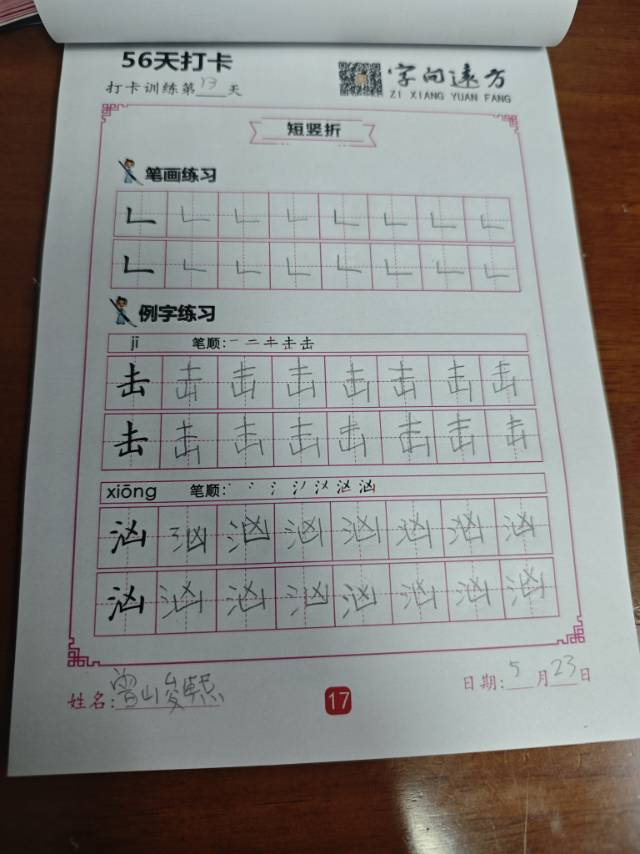 56天打卡
打卡训练第13天
字向远方
ZI XIANG YUAN FANG
短竖折
笔画练习
𠃊 𠃊 𠃊 𠃊 𠃊 𠃊 𠃊 𠃊
𠃊 𠃊 𠃊 𠃊 𠃊 𠃊 𠃊 𠃊
例字练习
jī 笔顺:一 二 キ 击 击
击 击 击 击 击 击 击 击
击 击 击 击 击 击 击 击
xiōng 笔顺:
汹 汹 汹 汹 汹 汹 汹 汹
汹 汹 汹 汹 汹 汹 汹 汹
姓名:曾山俊熙
17
日期:5月23日